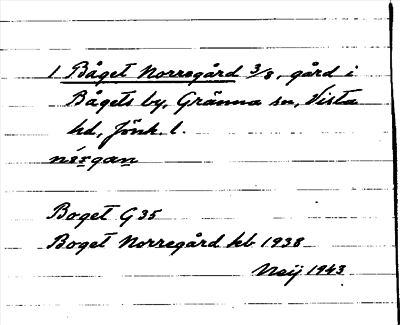 1 Båget Norregård 3/8, gård i
Bågets by, Gränna sn, Vista
hd, Jönk. l.
nórgan
Boget G35
Boget Norregård kb 1938
Neij 1943